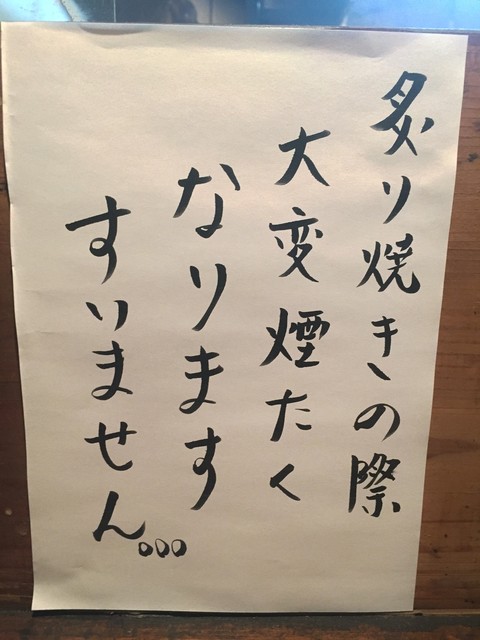 炙り焼きの際
大変煙たく
なります
すいません。。。